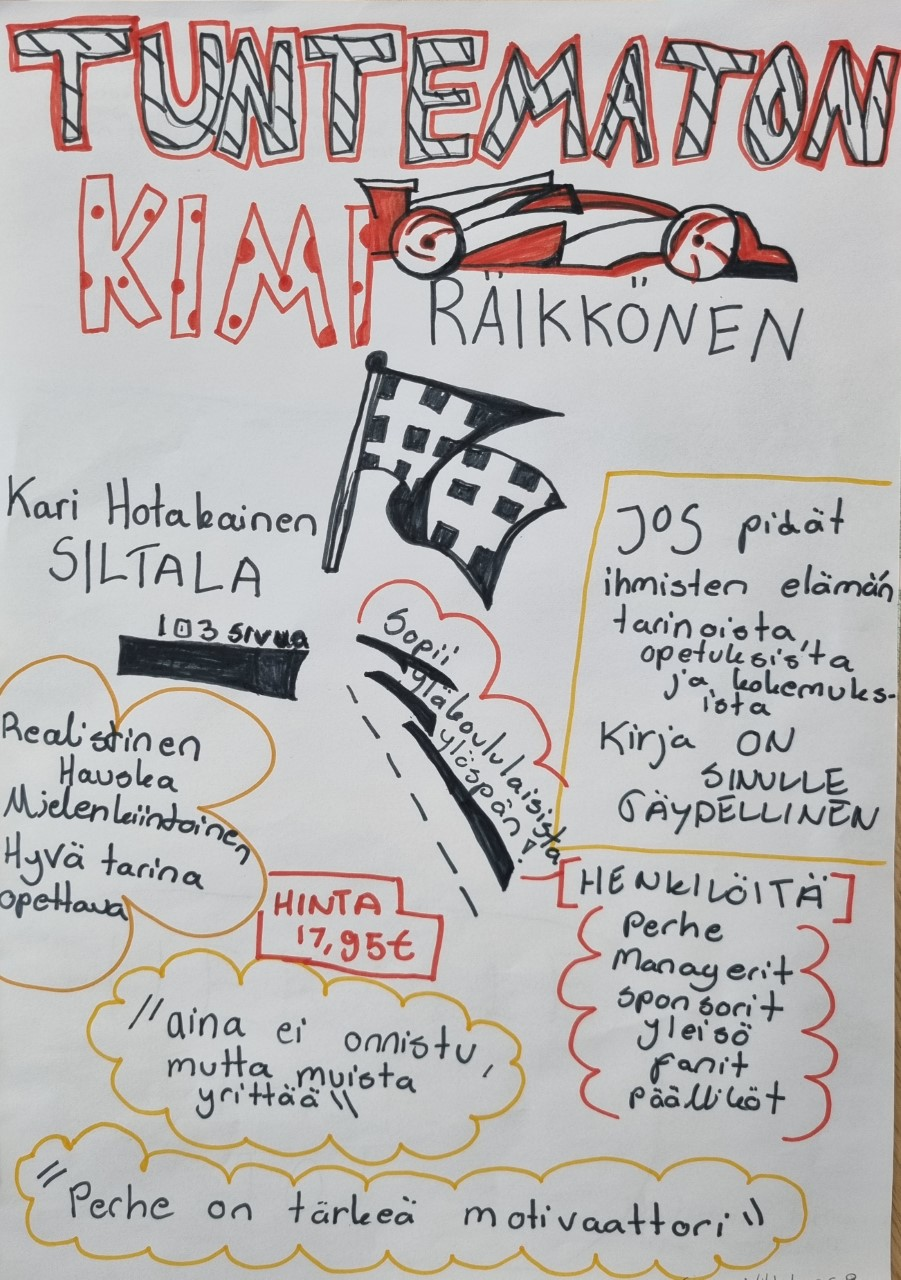 TUNTEMATON
KIMI
RÄIKKÖNEN
Kari Hotakainen
SILTALA
103 sivua
Realistinen
Hauska
Mielenkiintoinen
Hyvä tarina
opettava
Sopii
yläkoululaisista
ylöspän!
JOS pidät
ihmisten elämän
tarinoista,
opetuksista
ja kokemuks-
ista
Kirja ON
SINULLE
TÄYDELLINEN
HINTA
17,95€
[HENKILÖITÄ]
Perhe
Managerit
sponsorit
yleisö
fanit
päälliköt
"aina ei onnistu,
mutta muista
yrittää"
"Perhe on tärkeä motivaattori"